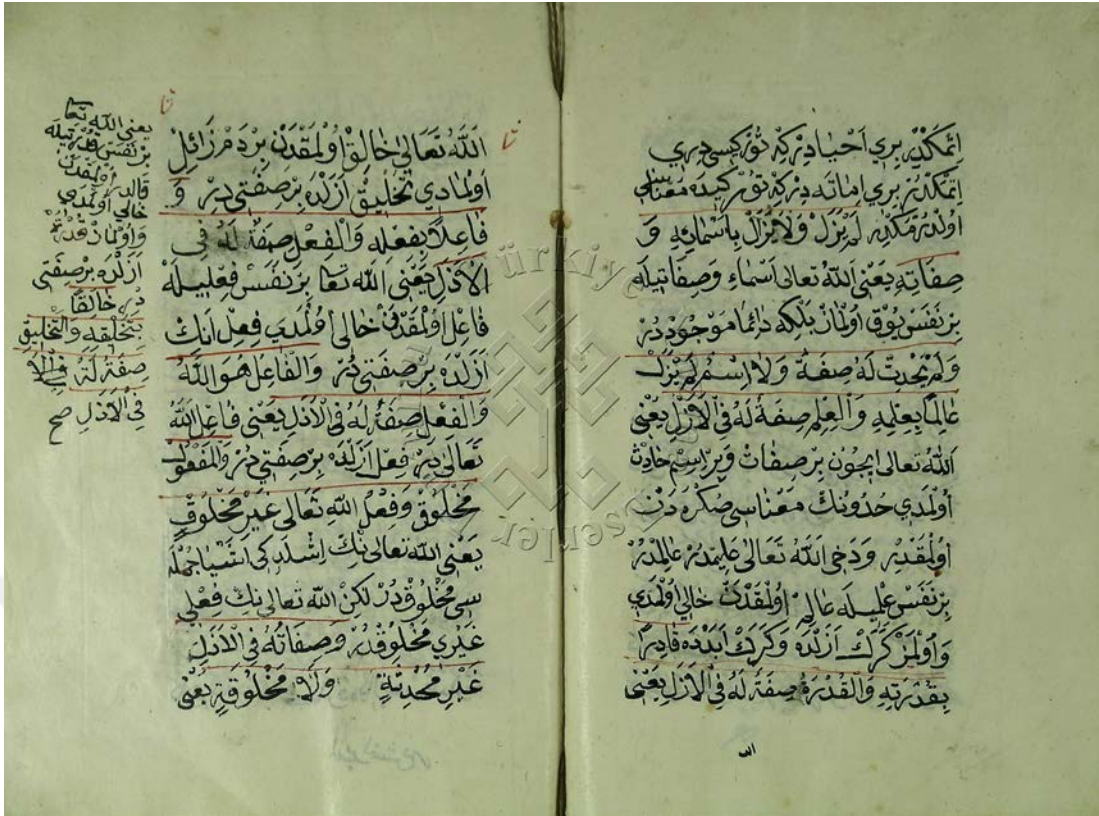 اِتْمَكْدُر بِرِي اَحْيَا دِرْكِه تُوزْ كِبِسِي دِرِي
اِتْمَكْدُرْ بِرِي اِمَاتَه دِرْكِه تُورْ كِيدَه مَعْنَاسِي
اولدُرْمَكْدُر لَمْ يَزَلْ وَلَا يَزَالُ بِاَسْمَائِهِ وَ
صِفَاتِهِ يَعْنِي اَللّٰهُ تَعَالٰى اَسْمَاءِ وَصِفَاتِيلَه
بِرْ نَفَسْ يُوقْ اُولْمَازْ بَلْكِه دَائِمَا مَوْجُودْدُرْ
وَلَمْ يَحْدِثْ لَهُ صِفَةٌ وَلَا اِسْمٌ لَمْ يَزَلْ
عَالِمًا بِعِلْمِهِ وَالْعِلْمُ صِفَةٌ لَهُ فِي الْاَزَلِ يَعْنِي
اَللّٰهُ تَعَالٰى اِيجُونْ بِرْ صِفَاتْ وَبِرْ اِسِمْ حَادِثْ
اُولْمَدِي حُدُوثُنكْ مَعْنَاسِي صُكْرَه دَنْ
اُولْمَقْدِرْ وَدَخِي اَللّٰهُ تَعَالٰى عَلِيمْدُرْ عَالِمْدُرْ
بِرْ نَفَسْ عِلْمِيلَه عَالِمْ اُولْمَقْدَنْ خَالِي اُولْمَدِي
وَاُولْمَزْ كَرَكْ اَزَلْدَه وَكَرَكْ اَبَدْدَه قَادِرًا
بِقُدْرَتِهِ وَالْقُدْرَةُ صِفَةٌ لَهُ فِي الْاَزَلِ يَعْنِي
الله
اَللّٰهُ تَعَالٰى خَالِقْ اُولْمَقْدَنْ بِرْ دَمْ زَائِلْ
اُولْمَادِي تَخْلِيقْ اَزَلْدَه بِرْ صِفَتِي دِرْ وَ
فَاعِلًا بِفِعْلِهِ وَالْفِعْلُ صِفَةٌ لَهُ فِي
الْاَزَلِ يَعْنِي اَللّٰه تَعَا بِرْ نَفَسْ فِعْلِيلَه
فَاعِلْ اُولْمَقْدَنْ خَالِي اُولْمَدِي فِعْلْ اَنِكْ
اَزَلْدَه بِرْ صِفَتِي دُرْ وَالْفَاعِلُ هُوَ اللّٰهُ
وَالْفِعْلُ صِفَةٌ لَهُ فِي الْاَزَلِ يَعْنِي فَاعِلْ اَللّٰهُ
تَعَالٰى دِرْ فِعِلْ اَزَلْدَه بِرْ صِفَتِي دُرْ وَالْمَفْعُولُ
مَخْلُوقٌ وَفِعْلُ اللّٰهِ تَعَالٰى غَيْرُ مَخْلُوقٍ
يَعْنِي اللّٰه تَعَالٰى نِكْ اِشْلَدِكِي اَشْيَا جُمْلَه
سِي مَخْلُوقْدُرْ لَكِنْ اللّٰه تَعَالٰى نِكْ فِعْلِي
غَيْرِي مَخْلُوقْدُرْ وَصِفَاتُهُ فِي الْاَزَلِ
غَيْرُ مُحْدَثَةٍ وَلَا مَخْلُوقَةٍ يَعْنِي
يعني الله تعا
بر نفس قدرتيله
قادر اولمقدن
خالي اولمدي
واولماز قدرة
ازلده بر صفتي
در خالقا
بتخليقه والتخليق
صفة له
في الازل صح
türkiye
eserler